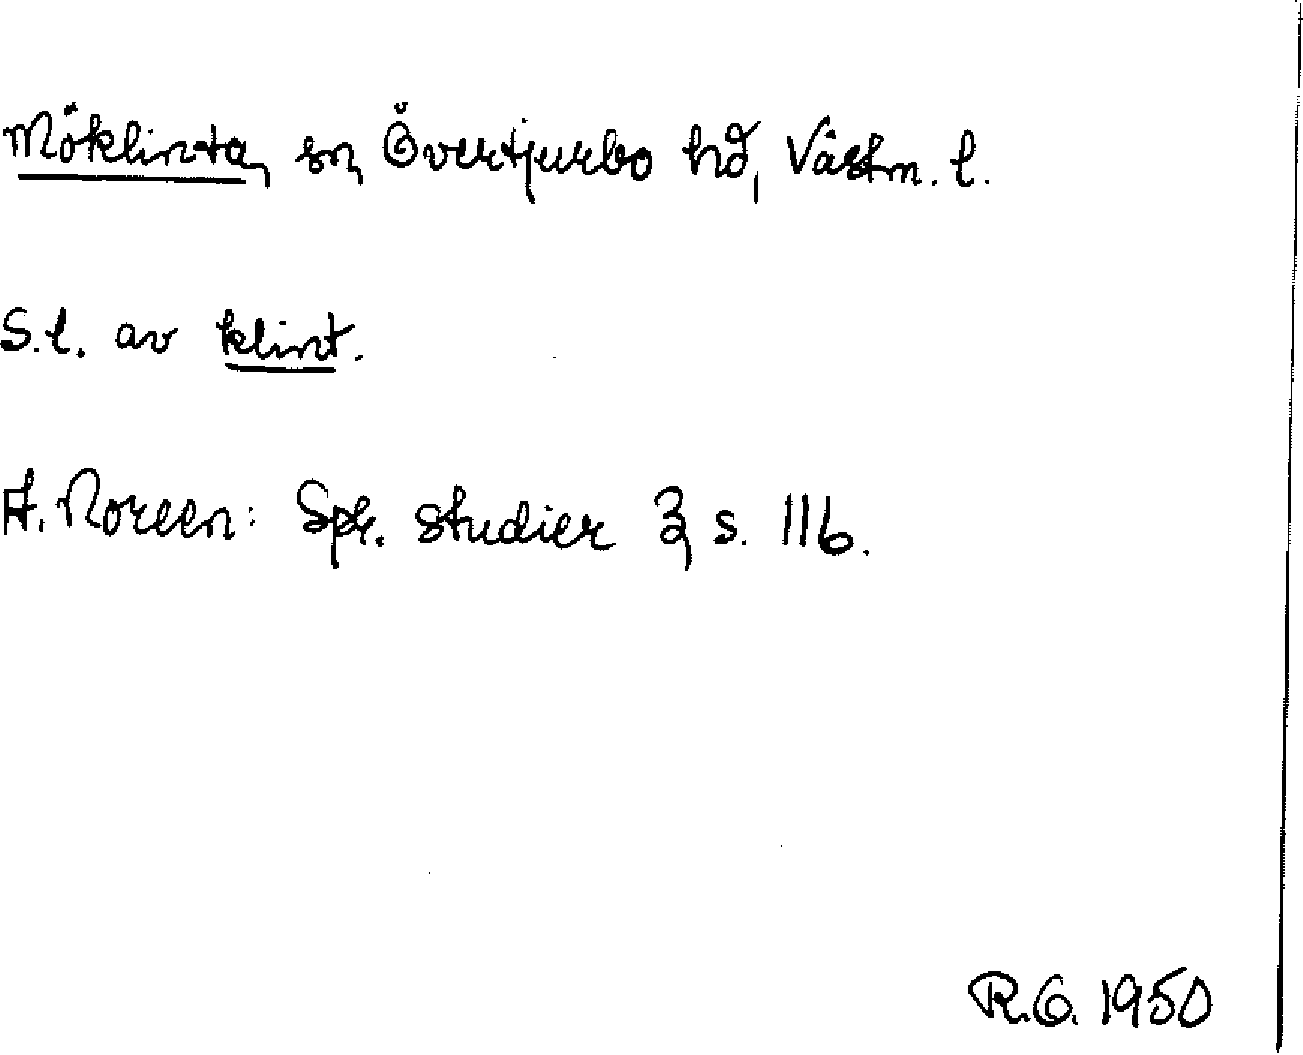 Möklinta, sn, Övertjurbo hd, Västm. l.
S.l. av klint.
A. Noreen: Spr. studier 3, s. 116.
R.G. 1950